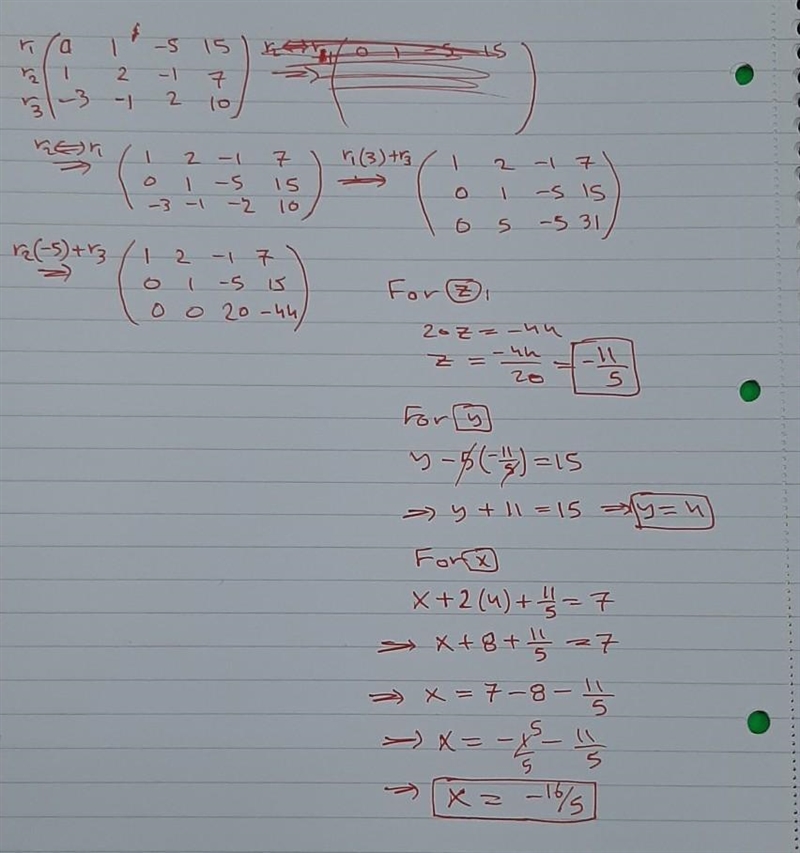 r1 ( 0 1 -5 15 ) r2⟺r1 ( 0 1 -5 15 )
r2 ( 1 2 -1 7 ) ⟹
r3 ( -3 -1 2 10 )
r2⟺r1 ⟹ ( 1 2 -1 7 ) r1(3)+r3 ⟶ ( 1 2 -1 7 )
( 0 1 -5 15 ) ( 0 1 -5 15 )
( -3 -1 -2 10 ) ( 0 5 -5 31 )
r2(-5)+r3 ⟹ ( 1 2 -1 7 )
( 0 1 -5 15 )
( 0 0 20 -44 )
For z,
20z = -44
z = -44/20 = -11/5
For y
y - 5(-11/5) = 15
⟹ y + 11 = 15 ⟹ y = 4
For x
x + 2(4) + 11/5 = 7
⟹ x + 8 + 11/5 = 7
⟹ x = 7 - 8 - 11/5
⟹ x = -1·5/5 - 11/5
⟹ x = -16/5